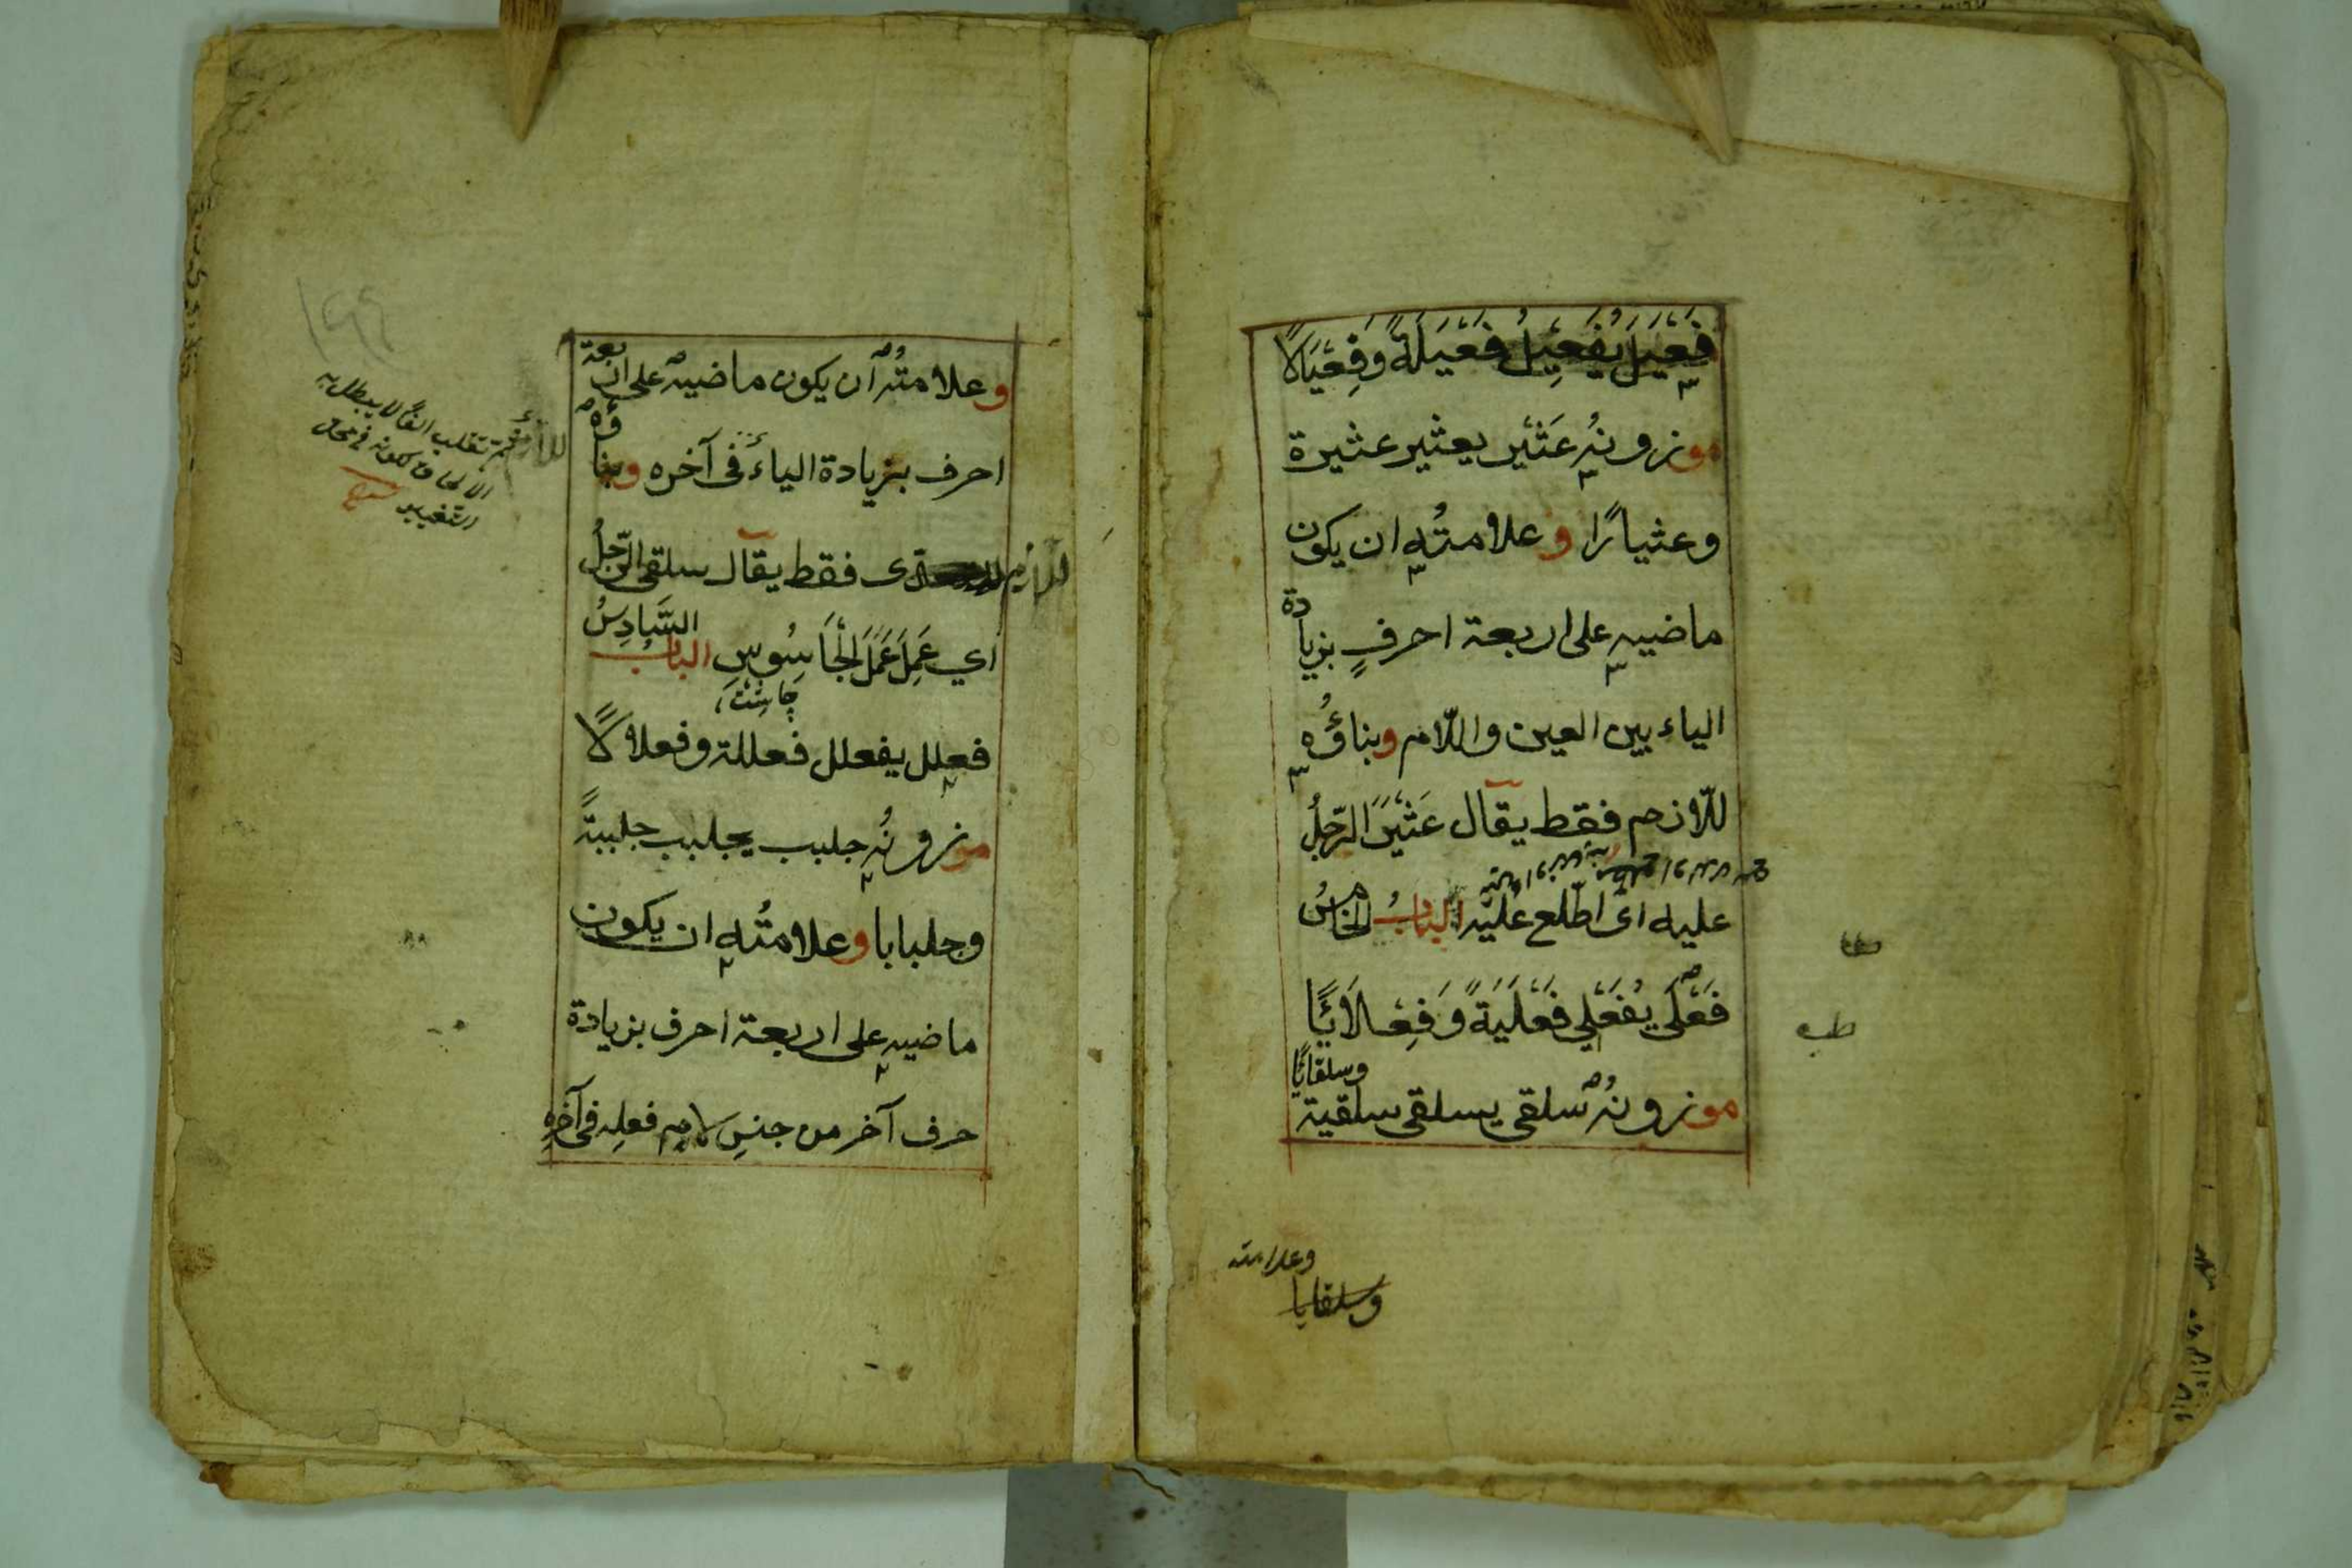 فَعْيَلَ يُفَعْيِلُ فَعْيَلَةً وَفِعْيَالًا
موزونُه عَثْيَر يعثير عثيرة
وعثيارًا وعلامتُه ان يكون
ماضيه على اربعة احرفٍ بزيادة
الياء بين العين واللّام وبناؤُه
للّازم فقط يقال عَثْيَرَ الرّجلُ
عليه اى اطّلع عليه البابُ الخامسُ
فَعْلَى يُفَعْلِي فَعْلَيَةً وَفِعْلَايًا
موزونُه سلقى يسلقى سلقية
وسلقايًا
وعلامته
وسلقايا
وعلامتُه ان يكون ماضيه على اربعة
احرف بزيادة الياء فى آخره وبناؤه
للازم فقط يقال سلقى الرّجلُ
اي عَمِلَ عَمَلَ الْجَاسُوسِ البابُ السَّادِسُ
فعلل يفعلل فعللة وفعلالًا
موزونُه جلبب يجلبب جلببةً
وجلبابا وعلامتُه ان يكون
ماضيه على اربعة احرف بزيادة
حرف آخر من جنسِ لام فعلِه فى آخرِه
تقلب الفًا لا يبطل به
الالحاق لكونه فى محل
التغيير